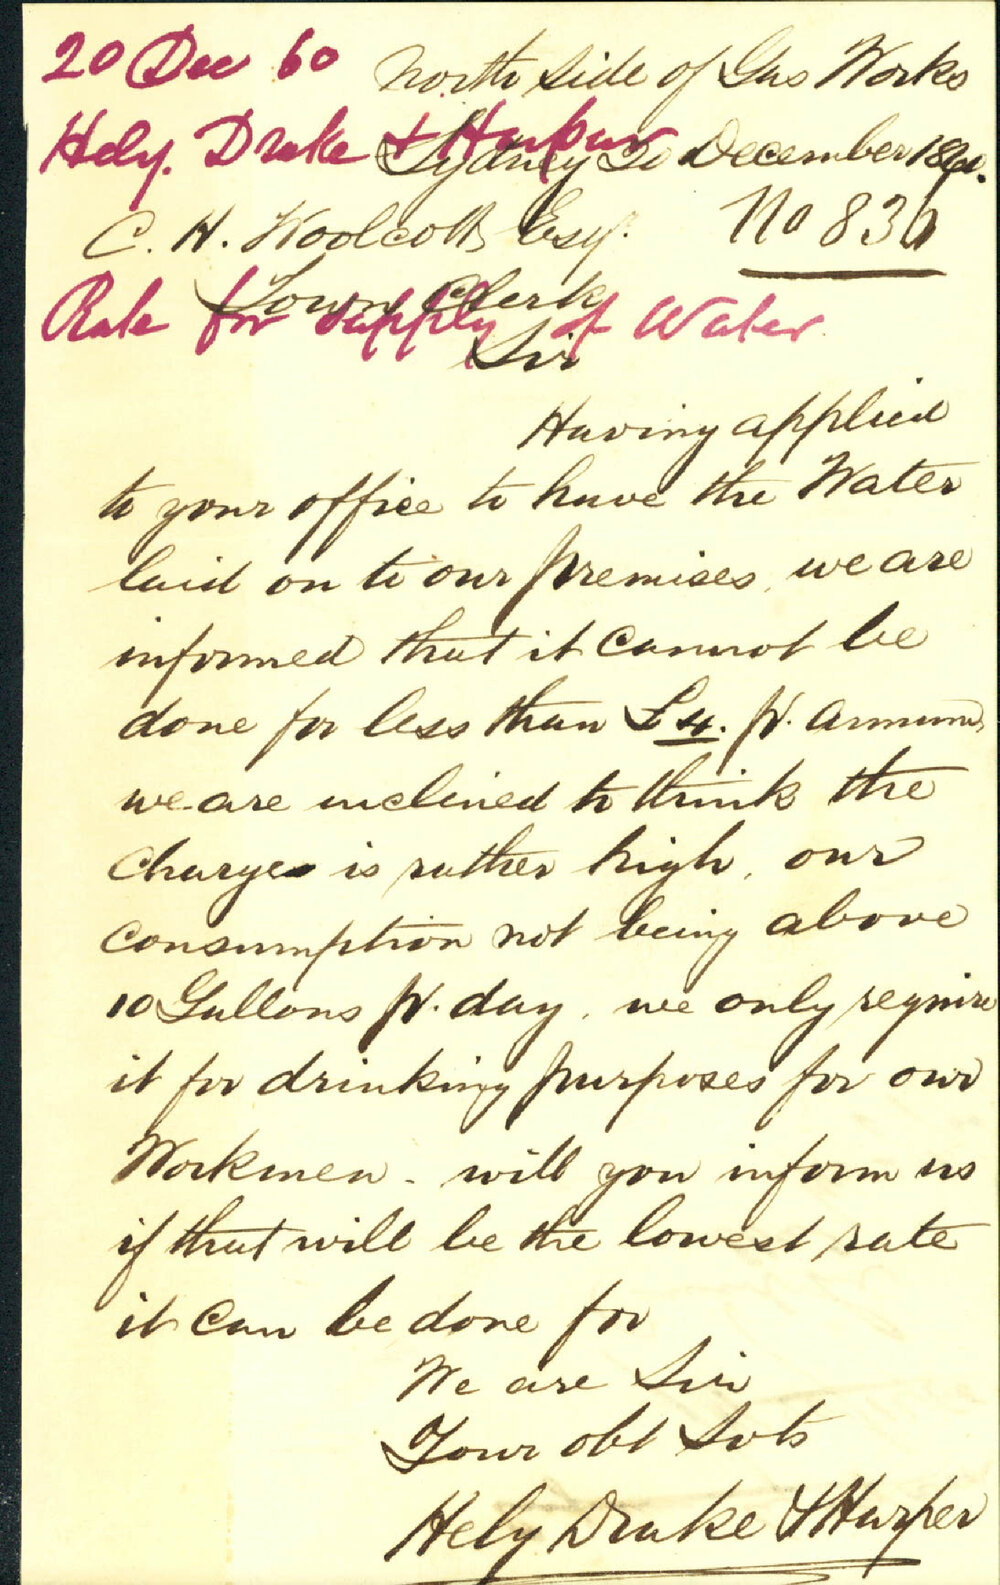 20 Dec 60
North Side of Gas Works
Hely. Drake & Harper
Sydney 20 December 1860.
No 836
C. H. Woolcott Esq.
Town Clerk
Rate for supply of Water
Sir
Having applied
to your office to have the Water
laid on to our premises, we are
informed that it cannot be
done for less than £4. pr. annum,
we are inclined to think the
Charge is rather high, our
Consumption not being above
10 Gallons pr. day, we only require
it for drinking purposes for our
Workmen - will you inform us
if that will be the lowest rate
it can be done for
We are Sir
Your obt Svts
Hely Drake & Harper